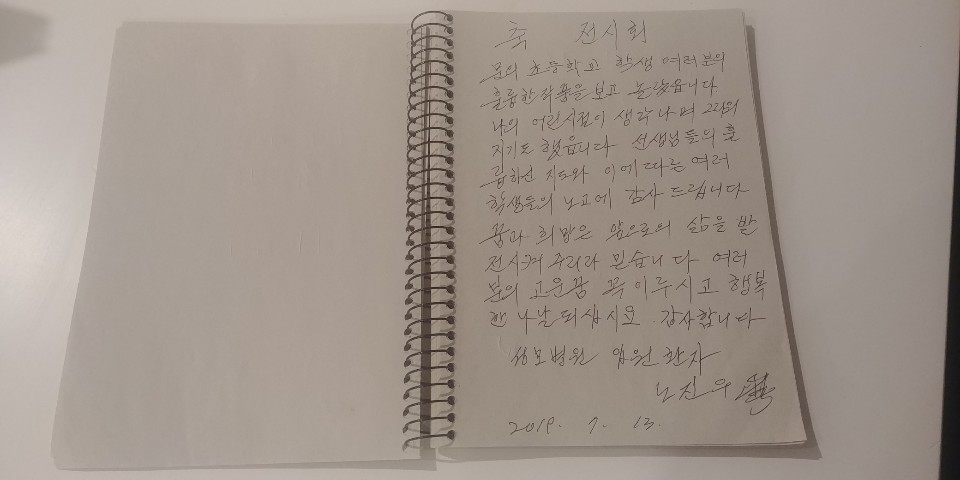 축 전시회
문의 초등학교 학생 여러분의
훌륭한 작품을 보고 놀랐읍니다
나의 어린시절이 생각나며 그리워
지기도 했읍니다 선생님들의 훌
륭하신 지도와 이에 따른 여러
학생들의 노고에 감사 드립니다
꿈과 희망은 앞으로의 삶을 발
전시켜 주리라 믿습니다 여러
분의 고운꿈 꼭 이루시고 행복
한 나날 되십시오. 감사합니다
성모병원 입원 환자
노진우
2019. 7. 13.